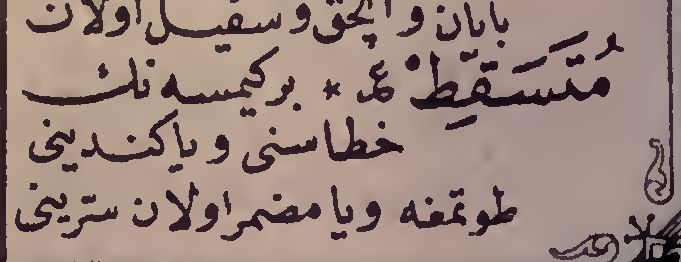 بایان و آلچق و سفیل اولان
مُتَسَقِّطْ عر * بر كیمسه نك
خطاسنی و یا كندینی
طوتمغه و یا مضمر اولان سترینی